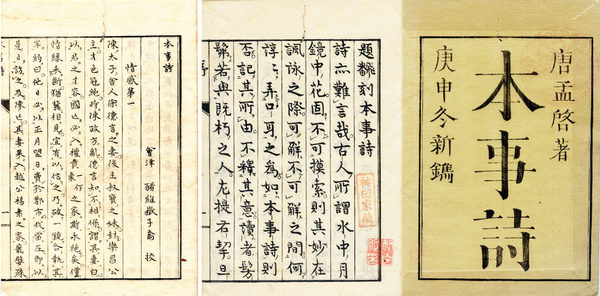 唐孟啓著
本事詩
庚申冬新鐫
題翻刻本事詩
詩亦難言哉古人所謂水中月
鏡中花固不可摸索則其妙在
諷詠之際可解不可解之間何
諄〻弄口耳之為如本事詩則
否記其所由不釋其意讀者髣
髴若與既朽之人左提右挈旦
神田家蔵
本事詩
情感第一
會津 維嶽子喬 校
陳太子舍人徐德言之妻後主叔寶之妹封樂昌公
主才色冠絕時陳政方亂德言知不相保謂其妻曰
以君之才容國亡必入權貴豪之家斯永絕矣儻
情緣未斷猶冀相見宜有以信之乃破一鏡各執其
半約曰他日必以正月望日賣於都市我當在即以
是日訪之及陳亡其妻果入越公楊素之家寵嬖殊